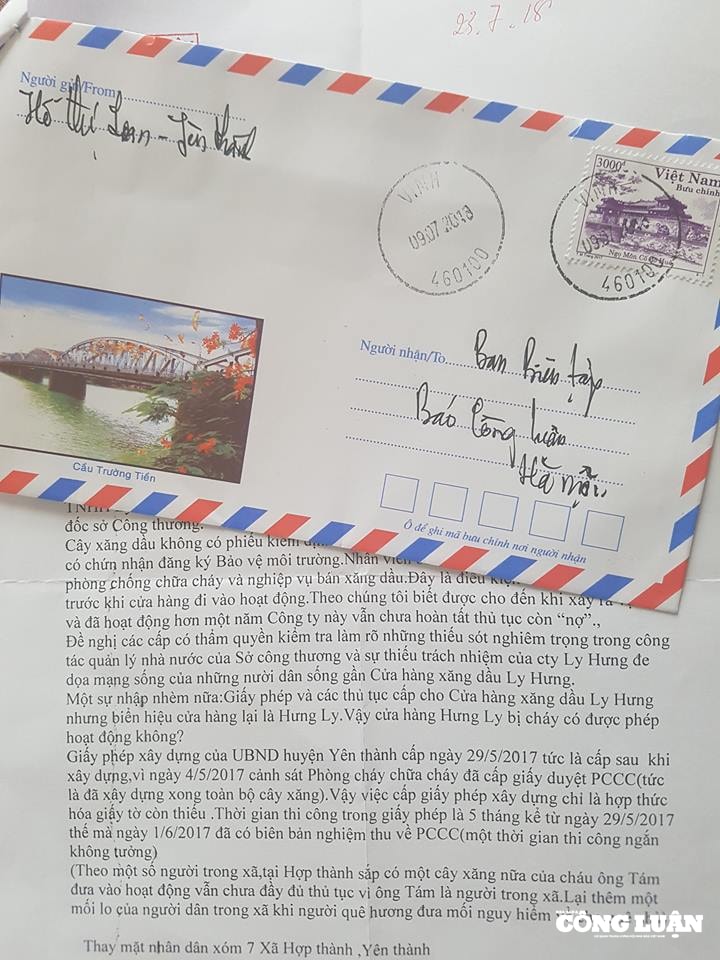 23.7.18
Người gửi/From
Hồ Thị Loan - Yên Thành
VINH
09.07.2018
460100
3000đ
Việt Nam
Bưu chính
Ngọ Môn Cố đô Huế
VINH
460100
Người nhận/To
Ban biên tập
Báo Công luận
Hà Nội
Cầu Trường Tiền
Ô để ghi mã bưu chính nơi người nhận
đốc sở Công thương.
Cây xăng dầu không có phiếu kiểm
có chứn nhận đăng ký Bảo vệ môi trường.Nhân viên
phòng chống chữa cháy và nghiệp vụ bán xăng dầu.Đây là điều kiện
trước khi cửa hàng đi vào hoạt động.Theo chúng tôi biết được cho đến khi xảy ra
và đã hoạt động hơn một năm Công ty này vẫn chưa hoàn tất thủ tục còn “nợ”.,
Đề nghị các cấp có thẩm quyền kiểm tra làm rõ những thiếu sót nghiêm trọng trong công
tác quản lý nhà nước của Sở công thương và sự thiếu trách nhiệm của cty Ly Hưng đe
dọa mạng sống của những nười dân sống gần Cửa hàng xăng dầu Ly Hưng.
Một sự nhập nhèm nữa:Giấy phép và các thủ tục cấp cho Cửa hàng xăng dầu Ly Hưng
nhưng biển hiệu cửa hàng lại là Hưng Ly.Vậy cửa hàng Hưng Ly bị cháy có được phép
hoạt động không?
Giấy phép xây dựng của UBND huyện Yên thành cấp ngày 29/5/2017 tức là cấp sau khi
xây dựng,vì ngày 4/5/2017 cảnh sát Phòng cháy chữa cháy đã cấp giấy duyệt PCCC(tức
là đã xây dựng xong toàn bộ cây xăng).Vậy việc cấp giấy phép xây dựng chỉ là hợp thức
hóa giấy tờ còn thiếu .Thời gian thi công trong giấy phép là 5 tháng kể từ ngày 29/5/2017
thế mà ngày 1/6/2017 đã có biên bản nghiệm thu về PCCC(một thời gian thi công ngắn
không tưởng)
(Theo một số người trong xã,tại Hợp thành sắp có một cây xăng nữa của cháu ông Tám
đưa vào hoạt động vẫn chưa đầy đủ thủ tục vì ông Tám là người trong xã.Lại thêm một
mối lo của người dân trong xã khi người quê hương đưa mối nguy hiểm
Thay mặt nhân dân xóm 7 Xã Hợp thành ,Yên thành
CÔNG LUẬN